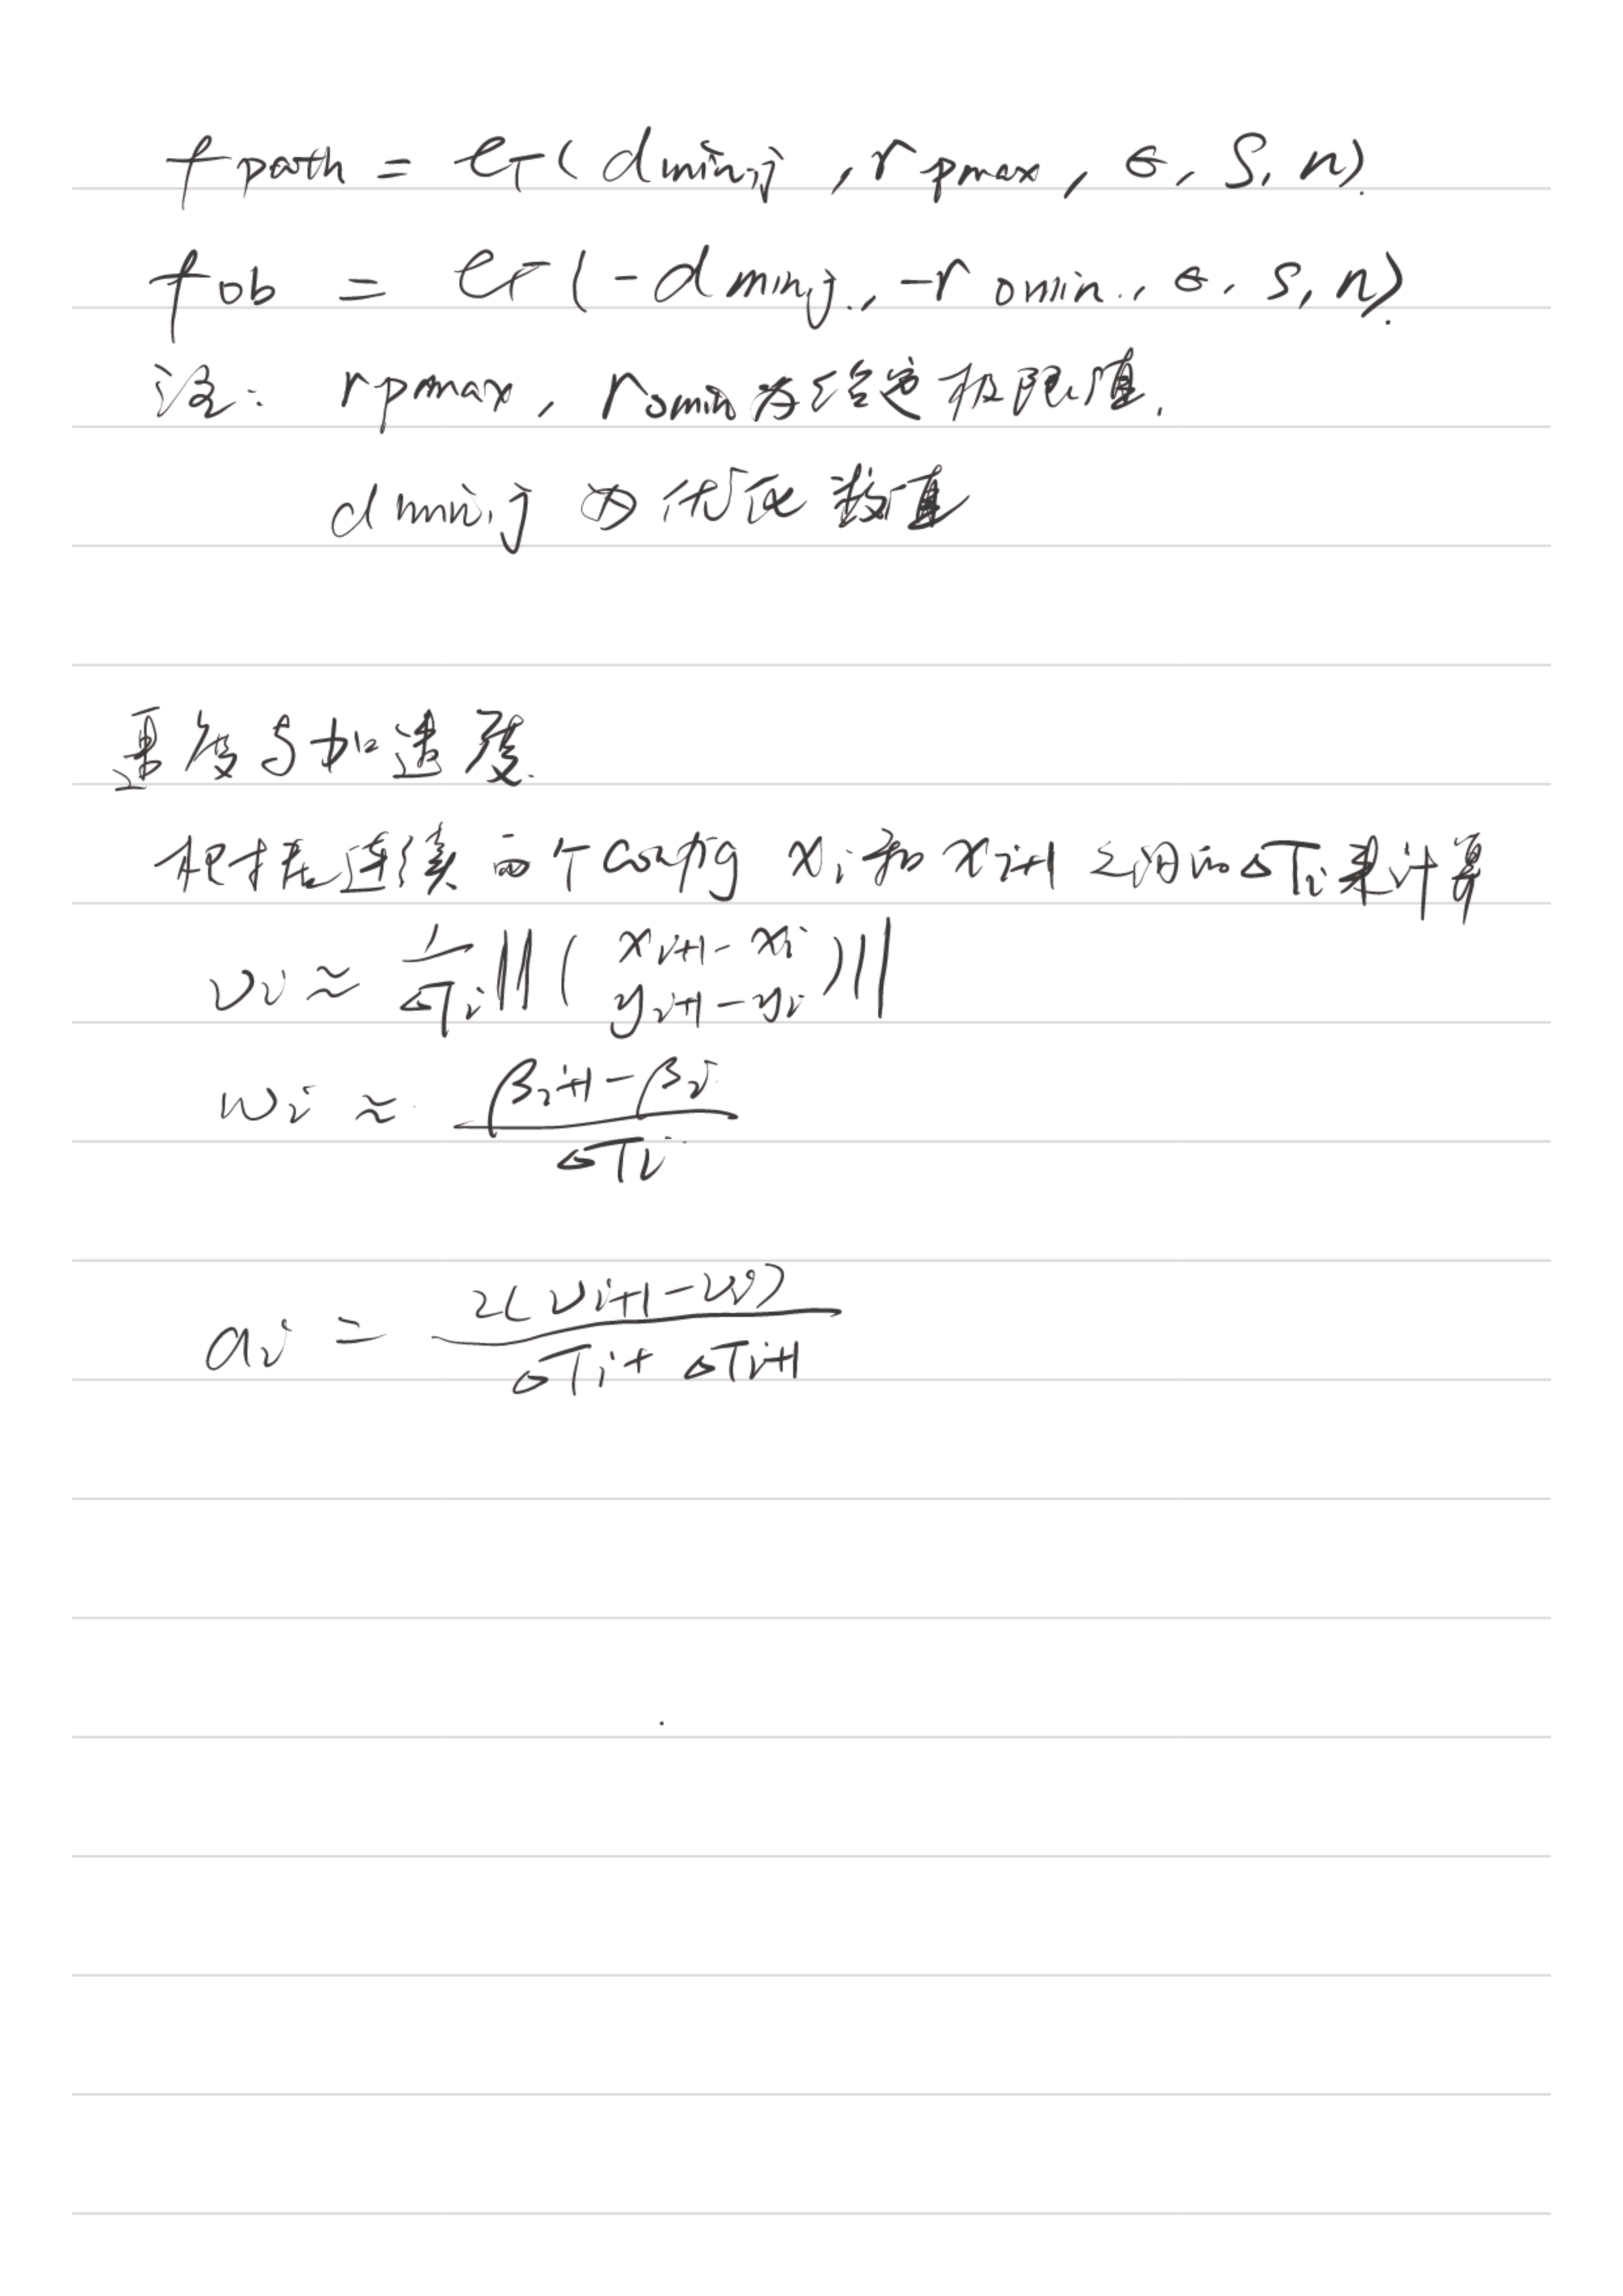 f path = e_T ( d min,j , r pmax , ϵ, S, n).
f ob = e_T ( -d min,j , -r omin , ϵ, s, n).
注: r pmax, r omin 为给定极限值.
d min,j 为优化数值
速度与加速度.
根据连续两个config x_i 和 x_{i+1} 之间的ΔT_i来计算
v_i ≈ 1/ΔT_i ||( x_{i+1} - x_i y_{i+1} - y_i )||
w_i ≈ (β_{i+1} - β_i) / ΔT_i
a_i = 2( v_{i+1} - v_i ) / ΔT_i + ΔT_{i+1}